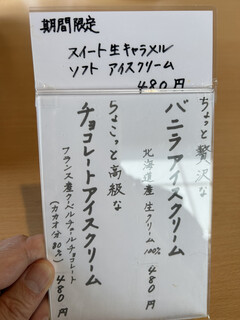 期間限定
スイート生キャラメル
ソフト アイスクリーム
480円
ちょっと贅沢な
バニラアイスクリーム
北海道産 生クリーム100% 480円
ちょこっと高級な
チョコレートアイスクリーム
フランス産クーベルチュールチョコレート
(カカオ分80%) 480円